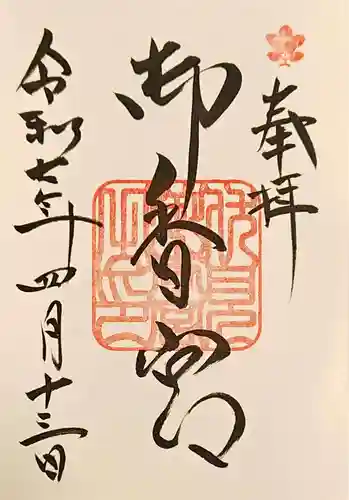 奉拝
御香宮
令和七年四月十三日